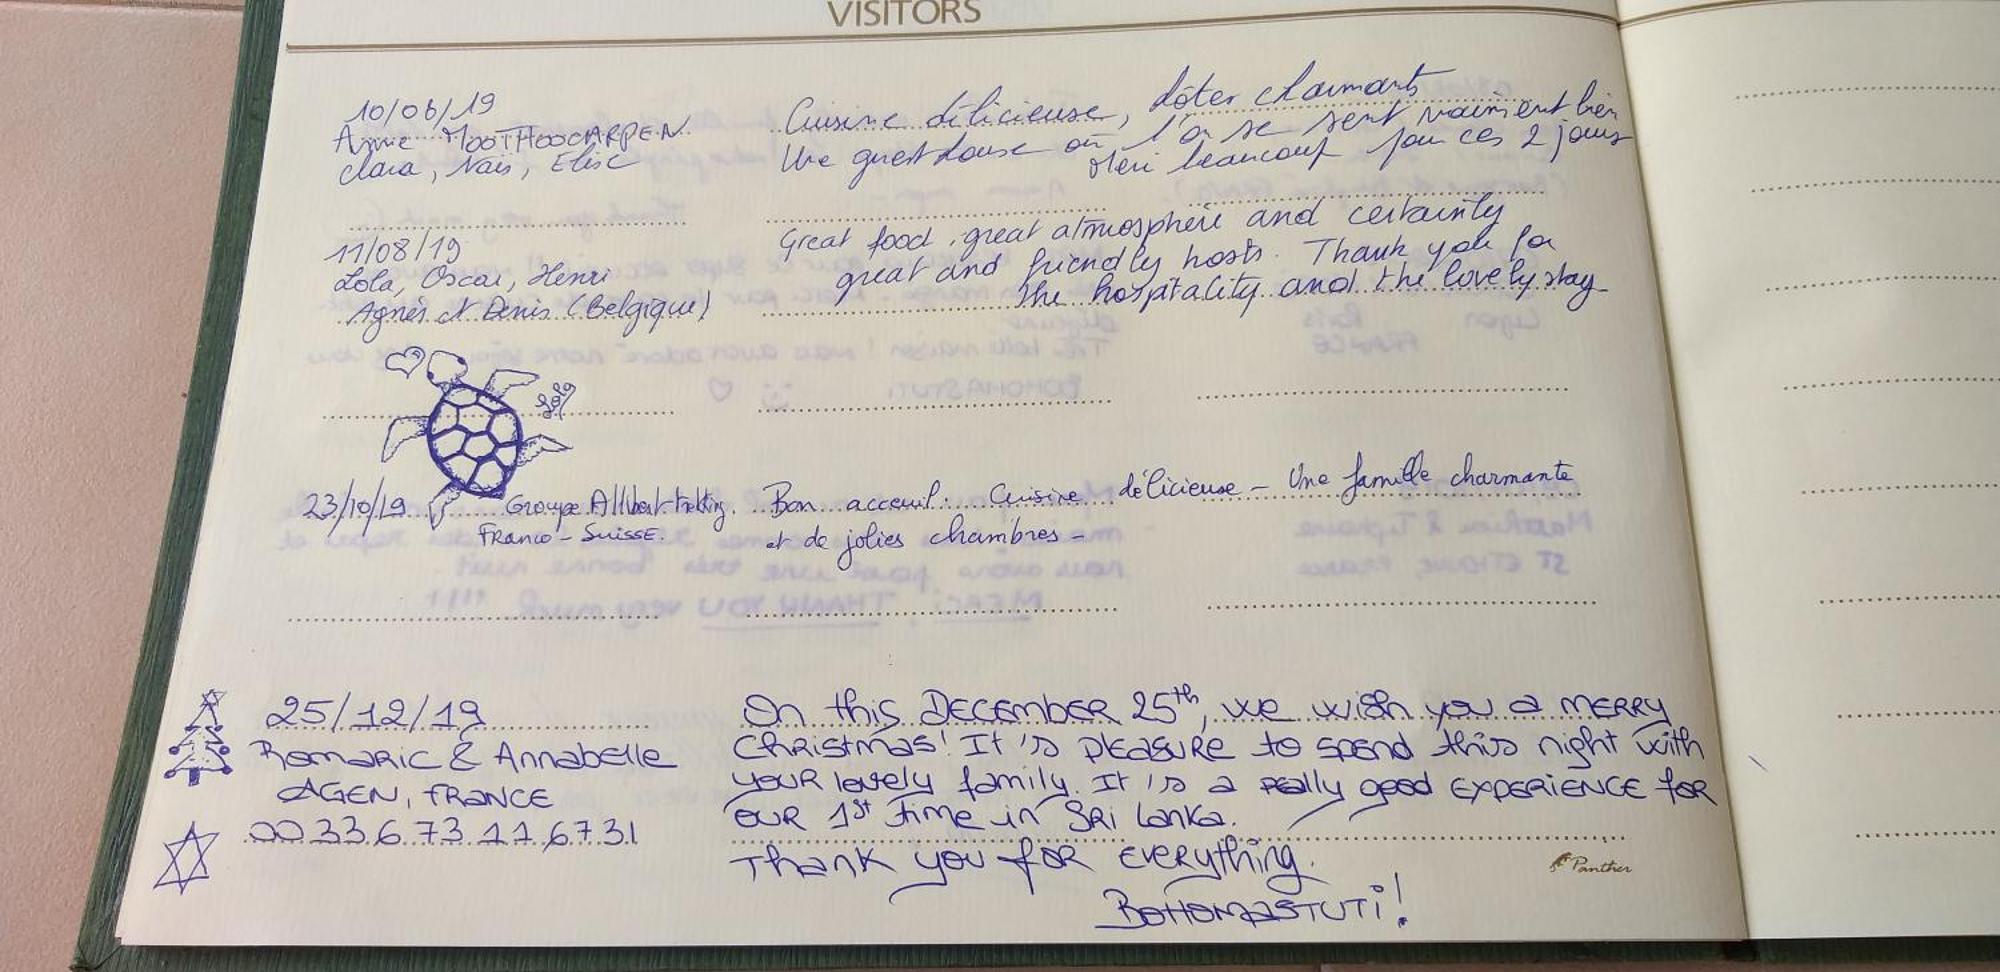 VISITORS
10/08/19
Annie MOOTHOOCARPEN
Clara, Naïs, Elise
Cuisine délicieuse, hôtes charmants
Une guesthouse où l'on se sent vraiment bien
Merci beaucoup pour ces 2 jours
11/08/19
Lola, Oscar, Henri
Agnès et Denis (Belgique)
Great food, great atmosphère and certainly
great and friendly hosts. Thank you for
the hospitality and the lovely stay
Lola
23/10/19 Groupe Allibert-trekking.
Franco-Suisse.
Bon acceuil. Cuisine délicieuse - Une famille charmante
et de jolies chambres -
25/12/19
Romaric & Annabelle
AGEN, FRANCE
00 33 6 73 11 67 31
On this DECEMBER 25th, we wish you a MERRY
Christmas! It's pleasure to spend this night with
your lovely family. It's a really good EXPERIENCE for
our 1st time in Sri Lanka.
Thank you for everything.
BOHOMASTUTi!
Panther